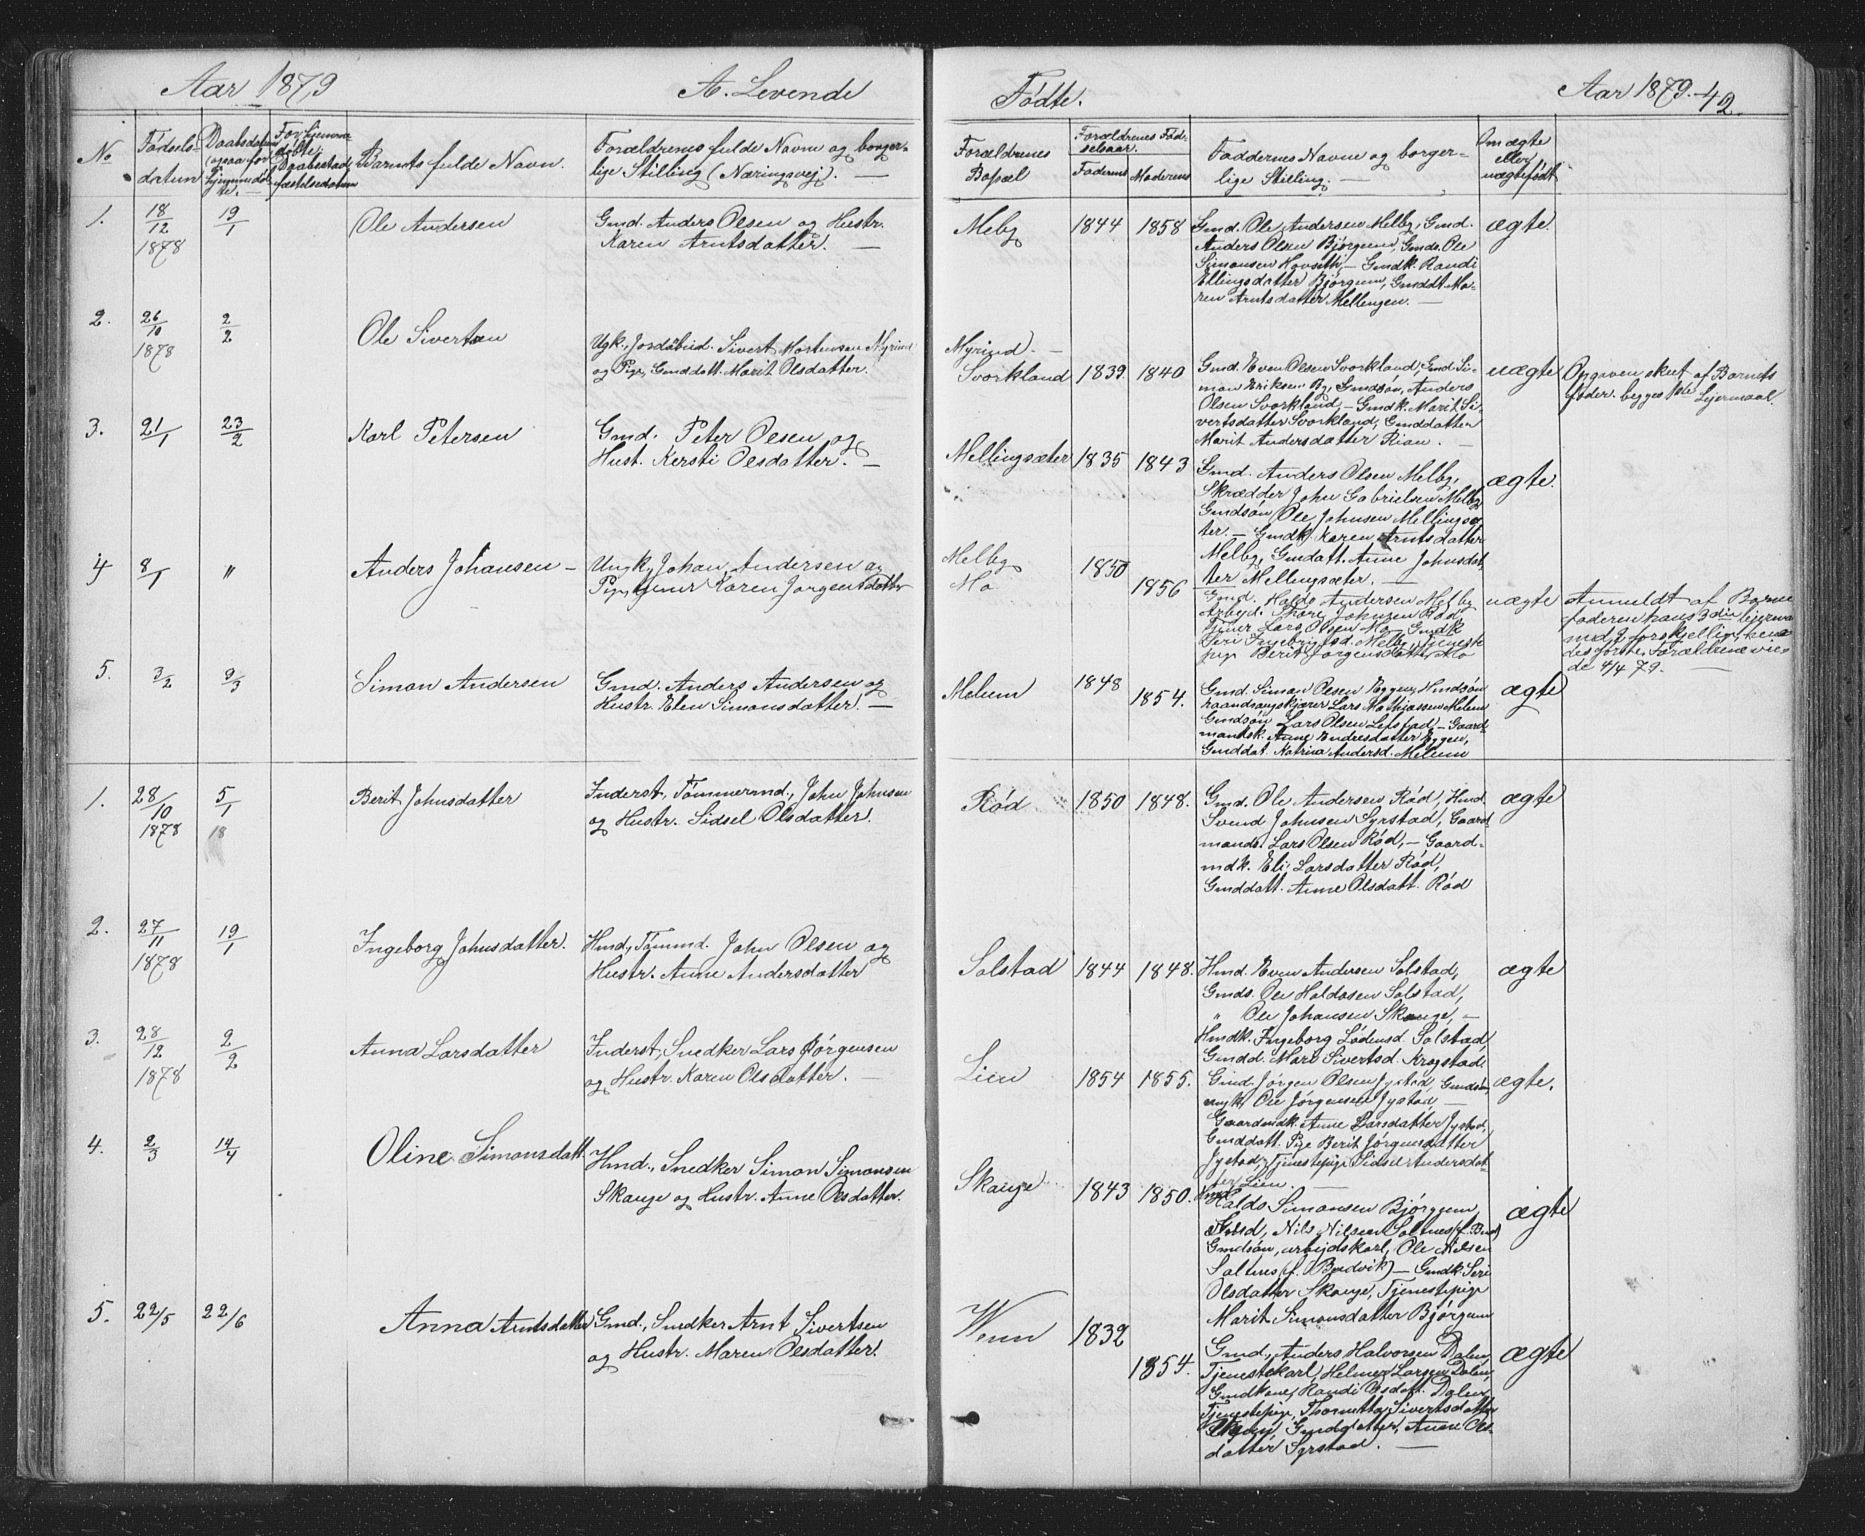 Aar 1879
A. Levende
Fødte.
Aar 1879.
42.
No
Fødsels-
datum
Daabsdatum
(ogsaa for
hjemmedøb-
te.
For hjemme
døbte:
Daabsstad-
fæstelsedatum
Barnets fulde Navn.
Forældrenes fulde Navn og borger-
lige Stilling (Næringsvej). —
Forældrenes
Bopæl
Forældrenes Fød-
selsaar.
Faderens
Moderens
Faddernes Navne og borger-
lige Stilling. —
Om ægte
eller
uægtefødt
1.
18/12
1878
19/1
Ole Andersen
Gmd. Anders Olsen og Hustr.
Karen Arntsdatter. —
Melby
1844
1858
Gmd. Ole Andersen Melby, Gmd.
Anders Olsen Bjørgum, Gmds. Ole
Simonsen Hovseth, — Gmdk. Randi
Ellingsdatter Bjørgum, Gmddt. Ma-
ren Arntsdatter Mellingen. —
ægte.
2.
26/10
1878
2/2
Ole Sivertsen
Ugk., Sivert Mortensen Myrind
og Pige, Gmddatt. Marit Olsdatter.
Myrind —
Svorkland
1839.
1840
Gmd. Even Olsen Svorkland, Gmd. Si-
mon Eriksen By, Gmdsøn, Anders
Olsen Svorkland — Gmdk. Marit Si-
vertsdatter Svorkland, Gmddatter
Marit Andersdatter Rian. —
uægte
Opgaven skeet af Barnets
fader. begges 1ste Lejermaal.
3.
21/1
23/2
Karl Petersen
Gmd. Peter Olsen og
Hust. Kersti Olsdatter. —
Mellingsæter
1835
1843
Gmd. Anders Olsen Melby,
Skrædder John Gabrielsen Melby
Gmdsøn Ole Johnsen Mellingsæ-
ter. — Gmdk. Karen Arntsdatter
Melby, Gmdatt. Anne Johnsdat-
ter Mellingsæter. —
ægte.
4
8/1
"
Anders Johansen —
Ungk., Johan Andersen og
Pige, tjener Karen Jørgensdatter
Melby
Mo
1850
1856
Gmd. Haldo Andersen Melby
Arbejd. Tore Johnsen Rød
Tjener Lars Olsen Mo — Gmdk
Siri Ingebrigtsd. Melby, Tjeneste
pige Berit Jørgensdatter Mo
uægte
Anmeldt af Barne
faderen hans 3die lejerm
med 2 forskjellige, hen
des første. Forældrene vie
de 4/4 79. —
5.
3/2
9/3
Simon Andersen
Gmd. Anders Andersen og
Hustr. Elen Simonsdatter. —
Melum
1848
1854.
Gmd. Simon Olsen Eggen, Hmdsøn
Lars Mathiassen Melum
Gmdsøn Lars Olsen Lefstad — Gaard-
mandsk. Anne Endresdatter Eggen,
Gmddat. Katrina Andersd. Melum
ægte
1.
28/10
1878
5/1
18
Berit Johnsdatter
Inderst, Tømmermd., John Johnsen
og Hustr. Sidsel Olsdatter.
Rød
1850
1848.
Gmd. Ole Andersen Rød, Hmd.
Svend Johnsen Syrstad, Gaard-
mands. Lars Olsen Rød, — Gaard-
mdk. Eli Larsdatter Rød,
Gmddatt. Anne Olsdatt. Rød
ægte
2.
27/11
1878
19/1
Ingeborg Johnsdatter.
Hmd, Tømmd. John Olsen og
Hustr. Anne Andersdatter
Solstad
1844
1848.
Hmd. Even Andersen Solstad,
Gmds. Ole Haldosen Solstad,
" Ole Johansen Skauge, —
Hmdk. Ingeborg Lødensd. Solstad
Gmdd. Mari Sivertsd. Krogstad.
ægte
3.
28/12
1878
2/2
Anna Larsdatter
Inderst, Snedker Lars Jørgensen
og Hustr. Karen Olsdatter. —
Lien
1854
1855.
Gmd Jørgen Olsen Jystad, Gmdsøn,
ungk. Ole Jørgensen Jystad —
Gaardmdk. Anne Larsdatter Jystad.
Gmddatt. Pige Berit Jørgensdatter
Jystad, Tjenestepige Sidsel Andersdat
ter Lien. —
ægte.
4.
2/3
14/4
Oline Simonsdatt.
Hmd., Snedker Simon Simonsen
Skauge og Hustr. Anne Olsdatter.
Skauge
1843
1850.
Hmd
Haldo Simonsen Bjørgum,
Nils Nilsen Solnes
Gmdsøn, arbejdskarl, Ole Nilsen
Solnes (f. Bredvik) — Gmdk. Siri
Olsdatter Skauge, Tjenestepige
Marit Simonsdatter Bjørgum
ægte
5.
22/5
22/6
Anna Arntsdatter
Gmd., Snedker Arnt Sivertsen
og Hustr. Maren Olsdatter.
Wenn
1832
1854.
Gmd., Anders Halvorsen Dalen,
Tjenestekarl, Helmer Larsen Dalen,
Gmdkone, Randi Olsdatt. Dalen,
Tjenestepige, Thomette Sivertsdatter
Gmdgdatter, Anne Ols-
datter Syrstad. —
ægte